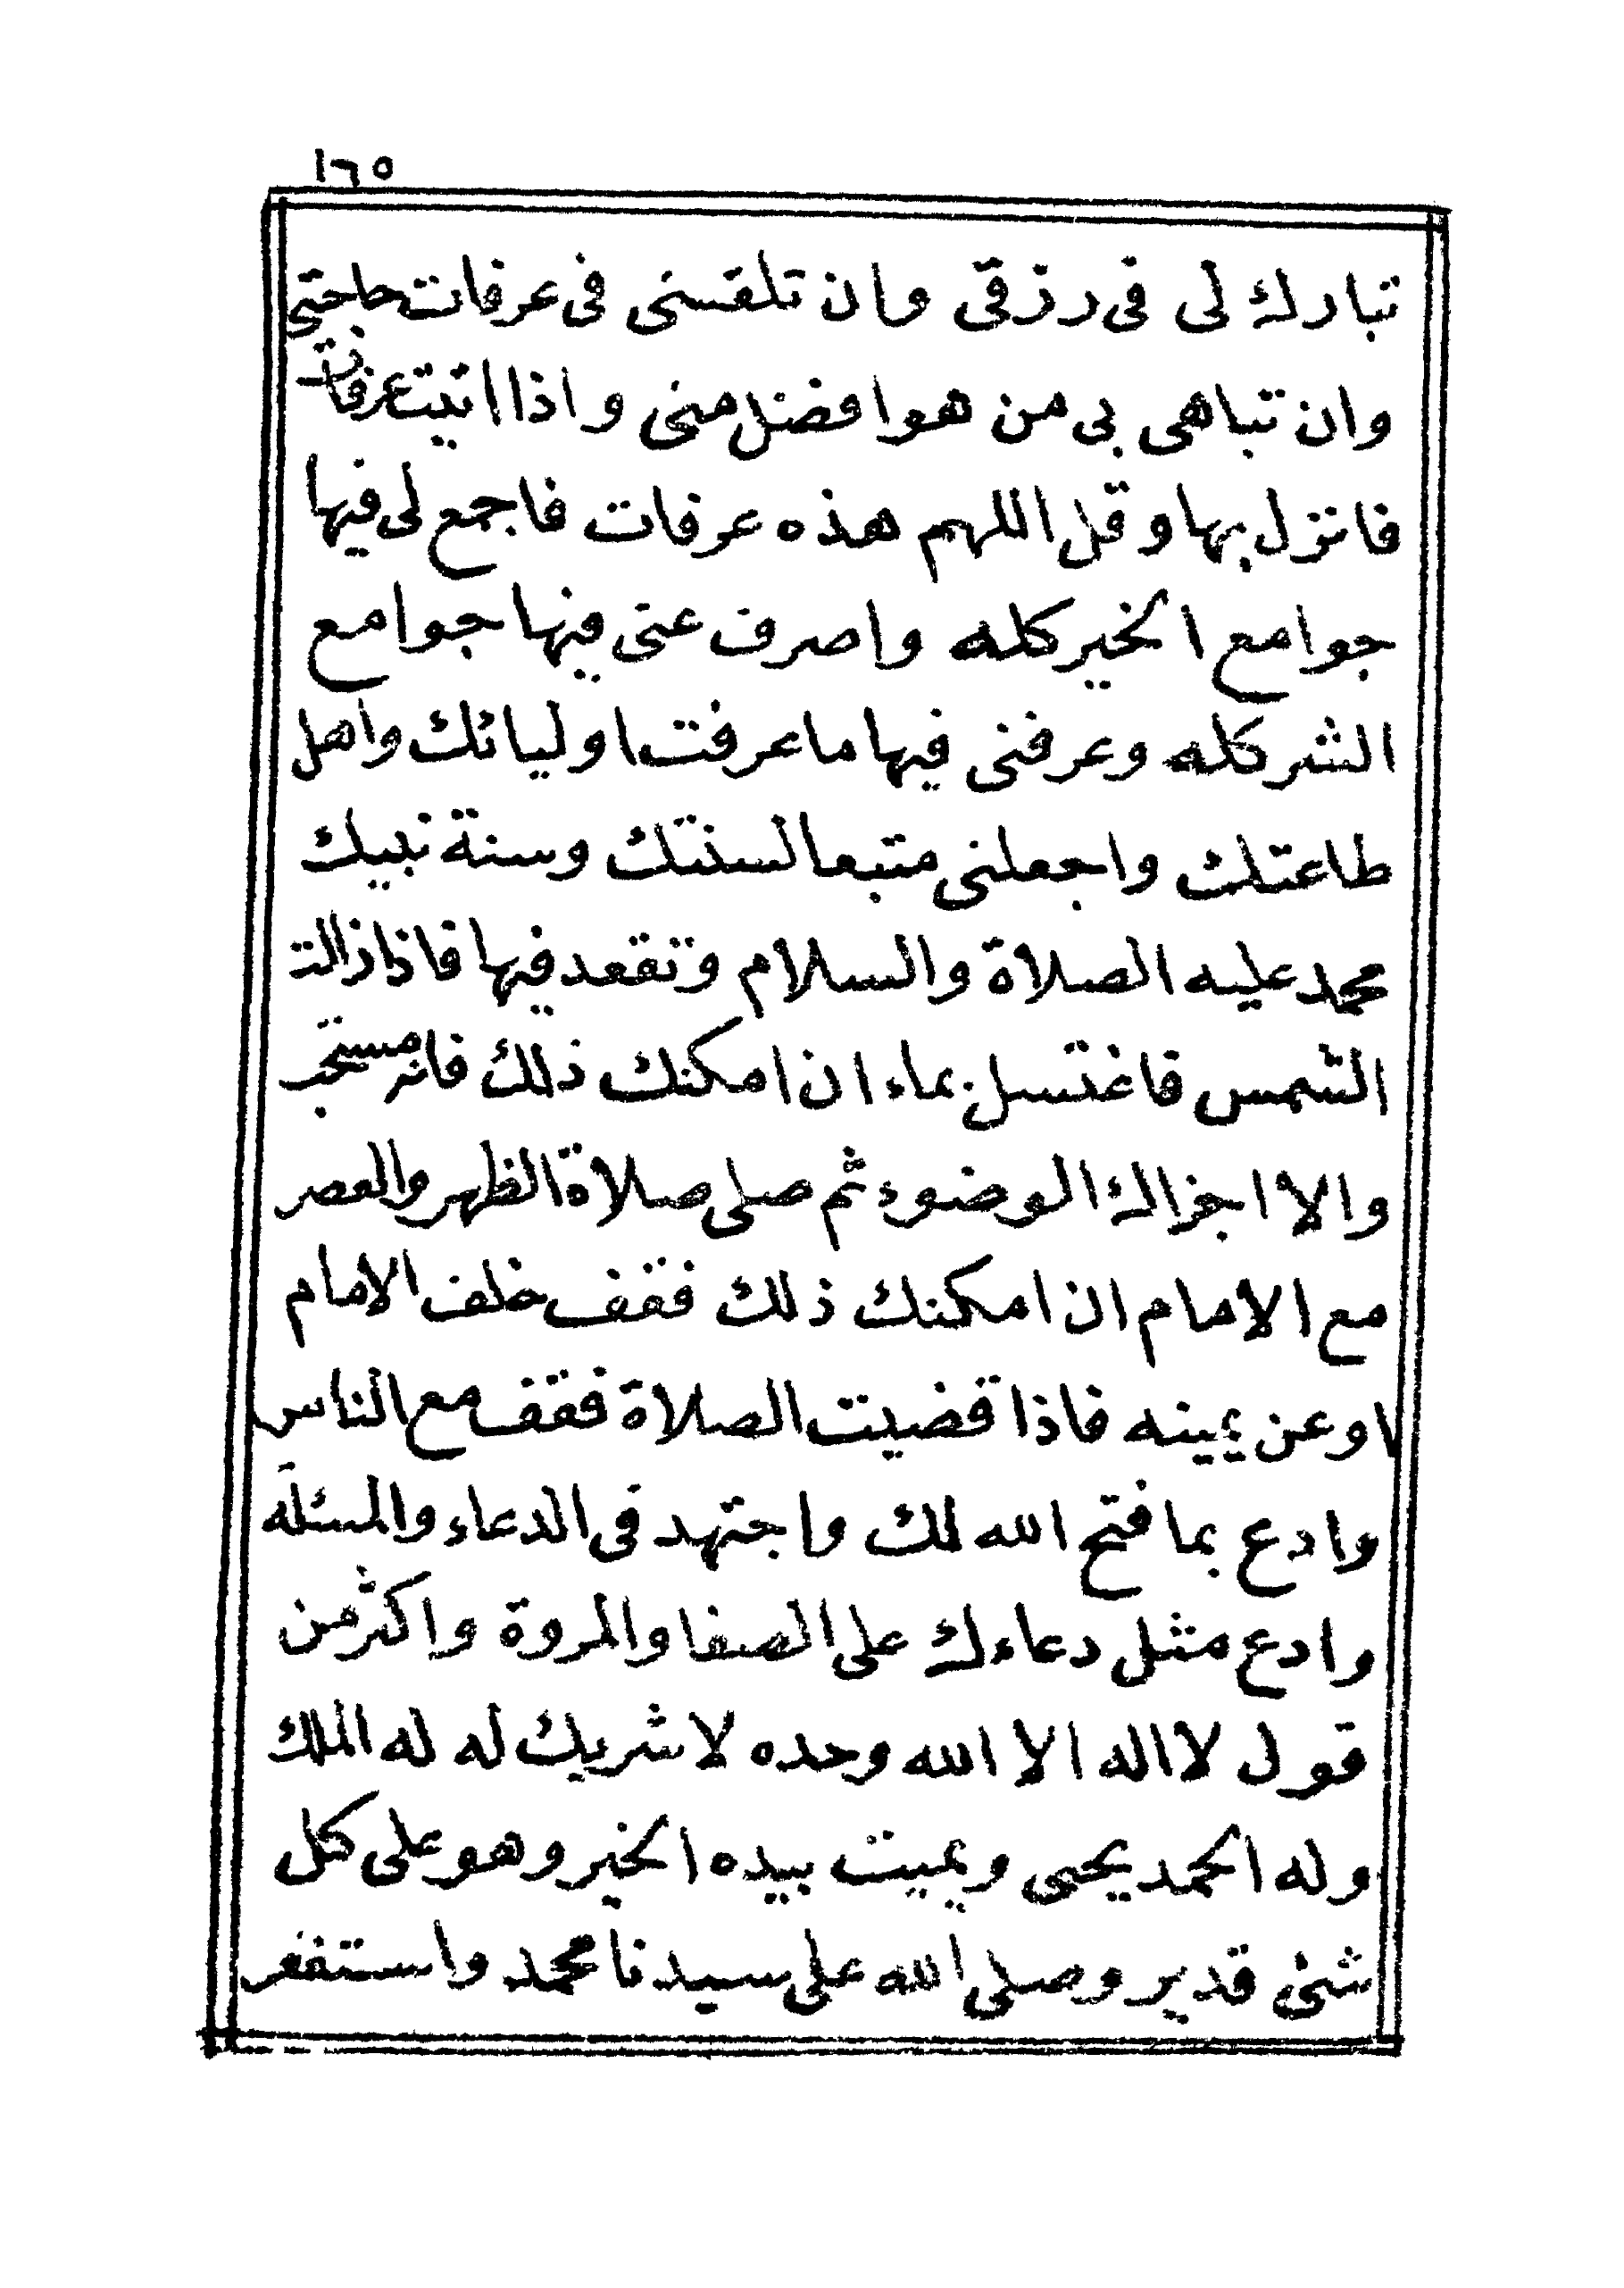 ١٦٥
تبارك لى فى رزقى وان تلقسنى فى عرفات حاجتى
وان تباهى بى من هو افضل منى واذا اتيت عرفات
فانزل بها وقل اللهم هذه عرفات فاجمع لى فيها
جوامع الخير كله واصرف عنى فيها جوامع
الشر كله وعرفنى فيها ما عرفت اوليائك واهل
طاعتك واجعلنى متبعا لسنتك وسنة نبيك
محمد عليه الصلاة والسلام وتقعد فيها فاذا زالت
الشمس فاغتسل بماء ان امكنك ذلك فانه مستحب
والا اجزاك الوضوء ثم صلى صلاة الظهر والعصر
مع الامام ان امكنك ذلك فقف خلف الامام
او عن يمينه فاذا قضيت الصلاة فقف مع الناس
وادع بما فتح الله لك واجتهد فى الدعاء والمسئلة
وادع مثل دعاءك على الصفا والمروة واكثر من
قول لا اله الا الله وحده لا شريك له له الملك
وله الحمد يحيى ويميت بيده الخير وهو على كل
شئ قدير وصلى الله على سيدنا محمد واستغفر